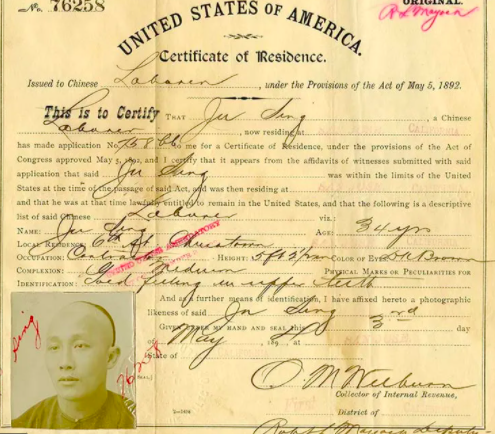 No. 76258
ORIGINAL.
UNITED STATES OF AMERICA.
Certificate of Residence.
Issued to Chinese Laborer, under the Provisions of the Act of May 5, 1892.
This is to Certify THAT Ju Sing, a Chinese
Laborer, now residing at
has made application No. to me for a Certificate of Residence, under the provisions of the Act of
Congress approved May 5, 1892, and I certify that it appears from the affidavits of witnesses submitted with said
application that said Ju Sing was within the limits of the United
States at the time of the passage of said Act, and was then residing at
and that he was at that time lawfully entitled to remain in the United States, and that the following is a descriptive
list of said Chinese Laborer viz.:
NAME: Ju Sing AGE: 34 yrs
LOCAL RESIDENCE: 6th St. Chinatown
OCCUPATION: HEIGHT: 5 ft COLOR OF EYES: Brown
COMPLEXION: Medium PHYSICAL MARKS OR PECULIARITIES FOR
IDENTIFICATION: Gold filling in upper teeth
And as a further means of identification, I have affixed hereto a photographic
likeness of said Ju Sing
GIVEN UNDER MY HAND AND SEAL this 3rd day
of May, 189
State of
O. M. Welburn
Collector of Internal Revenue,
District of
Sing
76258